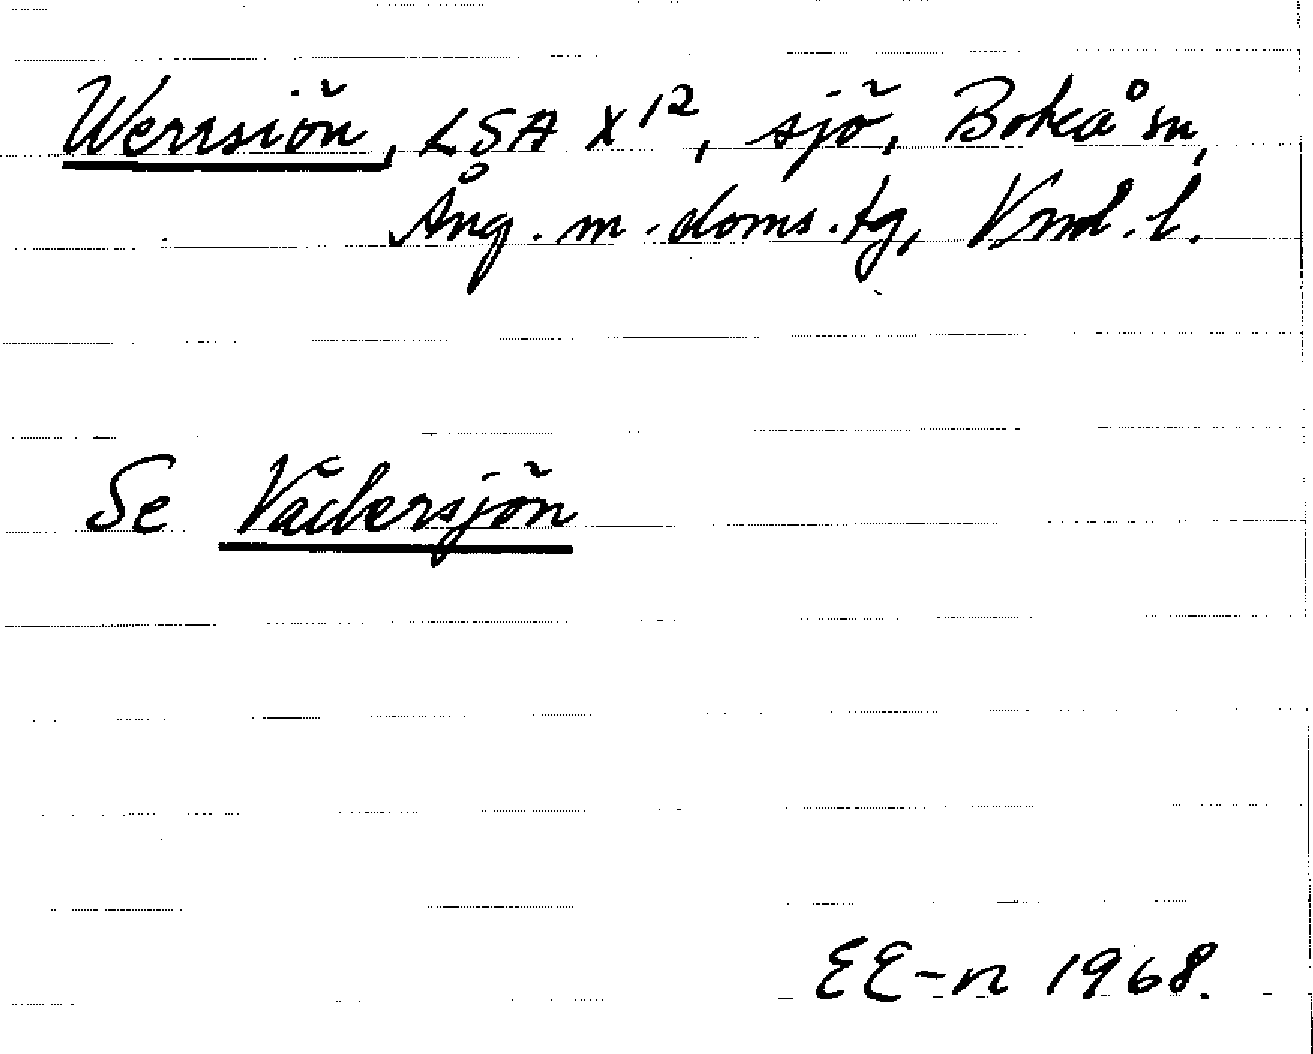 Werrsiön, LSA X12, sjö, Boteå sn,
Ång. m. doms. tg, Vrnl. l.
Se Vädersjön
EE-n 1968.